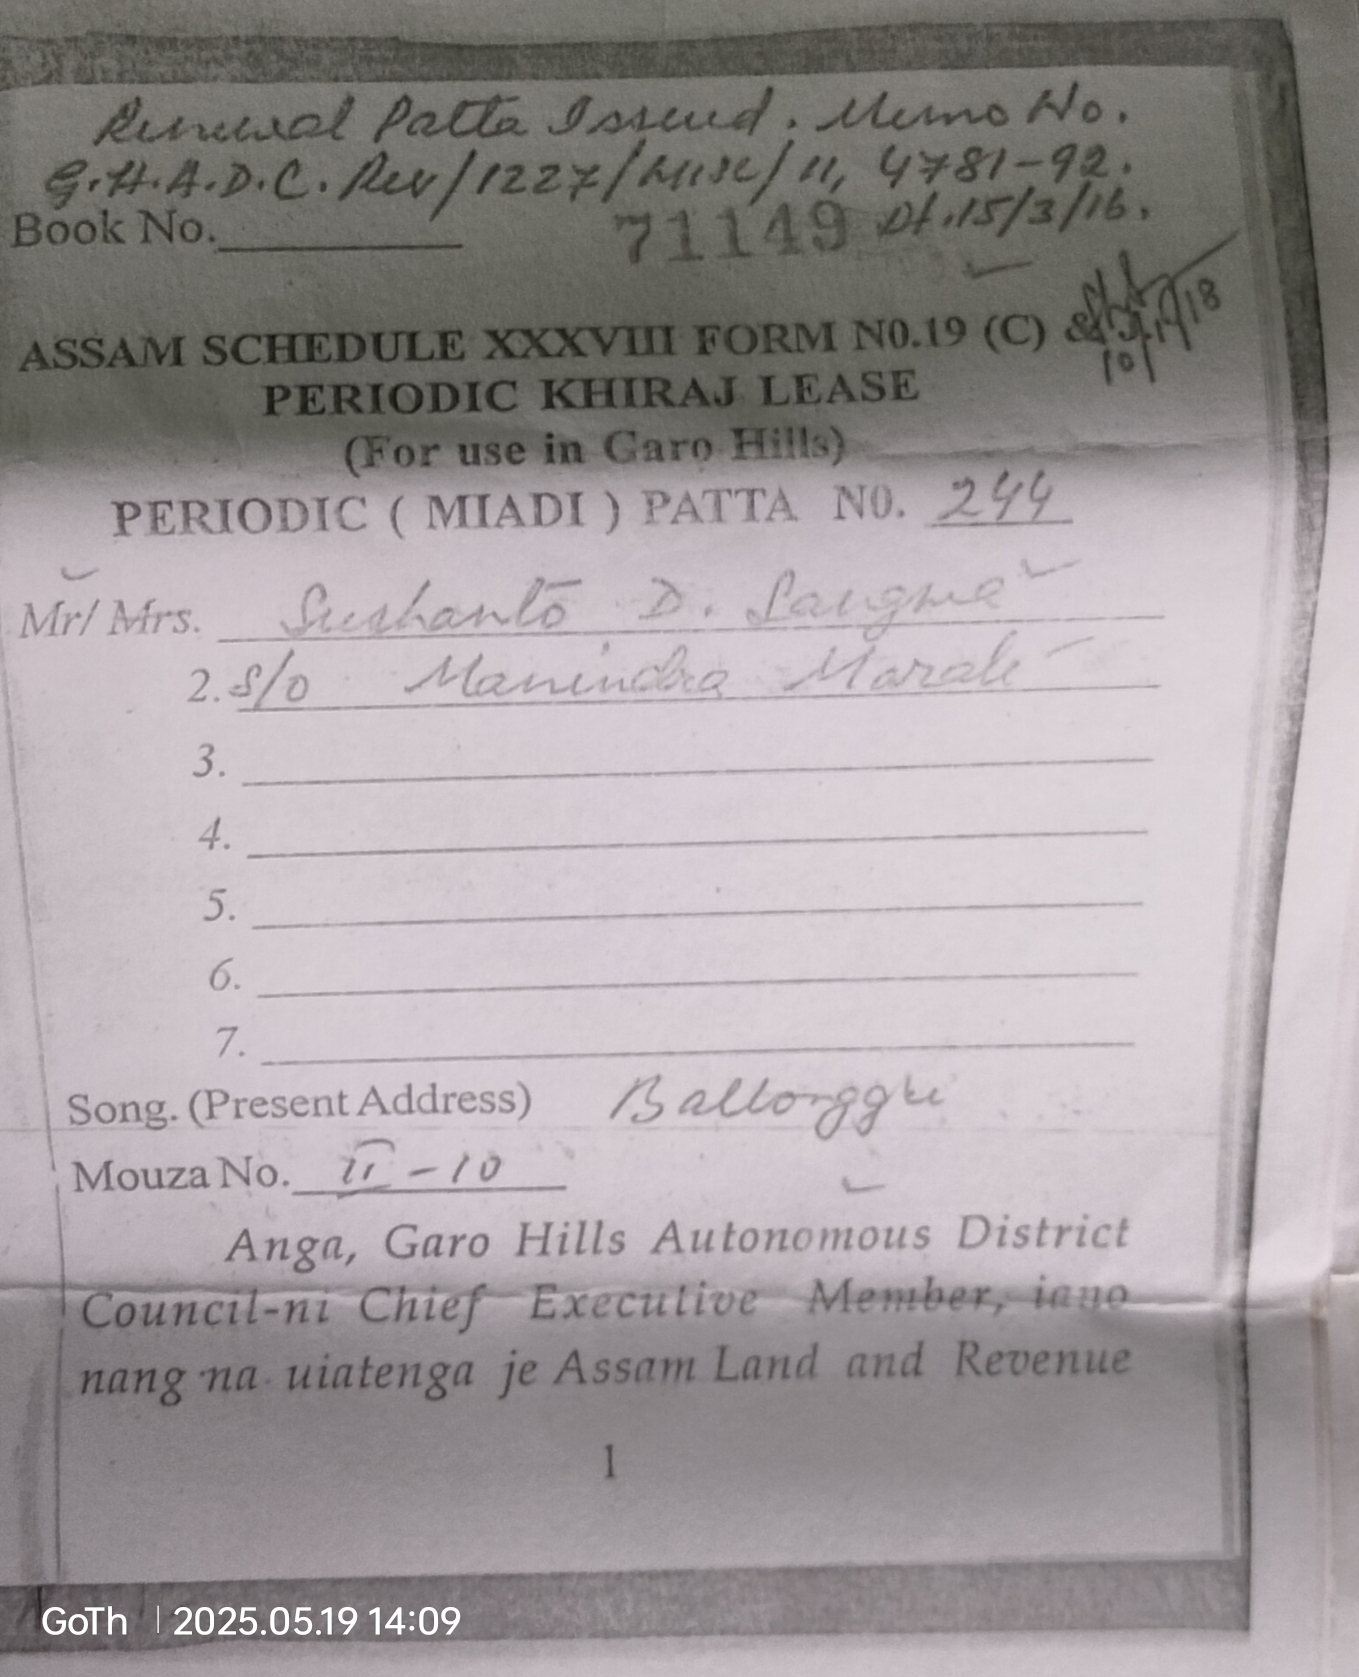 Renewal Patta Issued. Memo No.
G.H.A.D.C. Rev/1227/Misc/11, 4781-92.
Book No. 71149 Dt.15/3/16.
ASSAM SCHEDULE XXXVIII FORM N0.19 (C) &
PERIODIC KHIRAJ LEASE
(For use in Garo Hills)
PERIODIC ( MIADI ) PATTA N0. 244
Mr/ Mrs. Sushanto D. Sangma
2. S/o Manindra Marak
3.
4.
5.
6.
7.
Song. (Present Address)
Mouza No. II-10
Anga, Garo Hills Autonomous District
Council-ni Chief Executive Member, iano
nang·na uiatenga je Assam Land and Revenue
1
GoTh | 2025.05.19 14:09